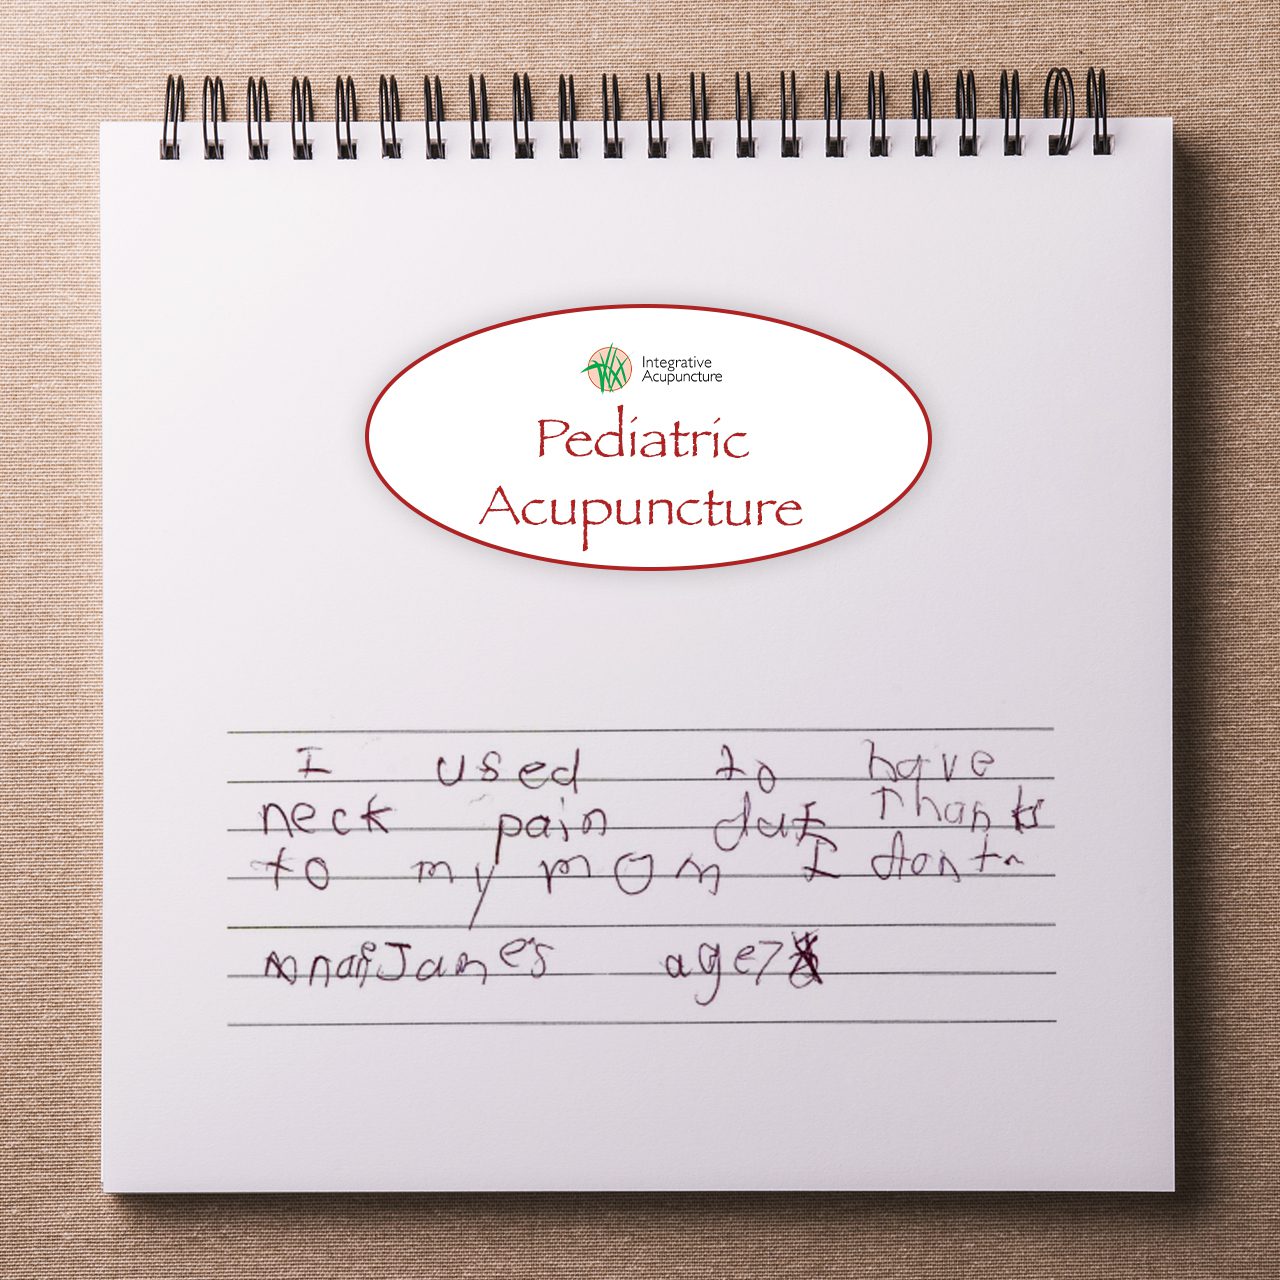 Integrative
Acupuncture
Pediatric
Acupuncture
I used to have
neck pain but Thanks
to my mom I dont
James age 7